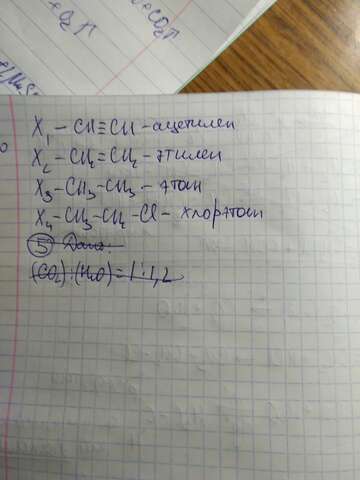 +O₂ ...
+CO₂↑
X₁ – CH≡CH – ацетилен
X₂ – CH₂=CH₂ – этилен
X₃ – CH₃–CH₃ – этан
X₄ – CH₃–CH₂–Cl – хлорэтан
5 Дано:
(CO₂):(H₂O)=1:1,2